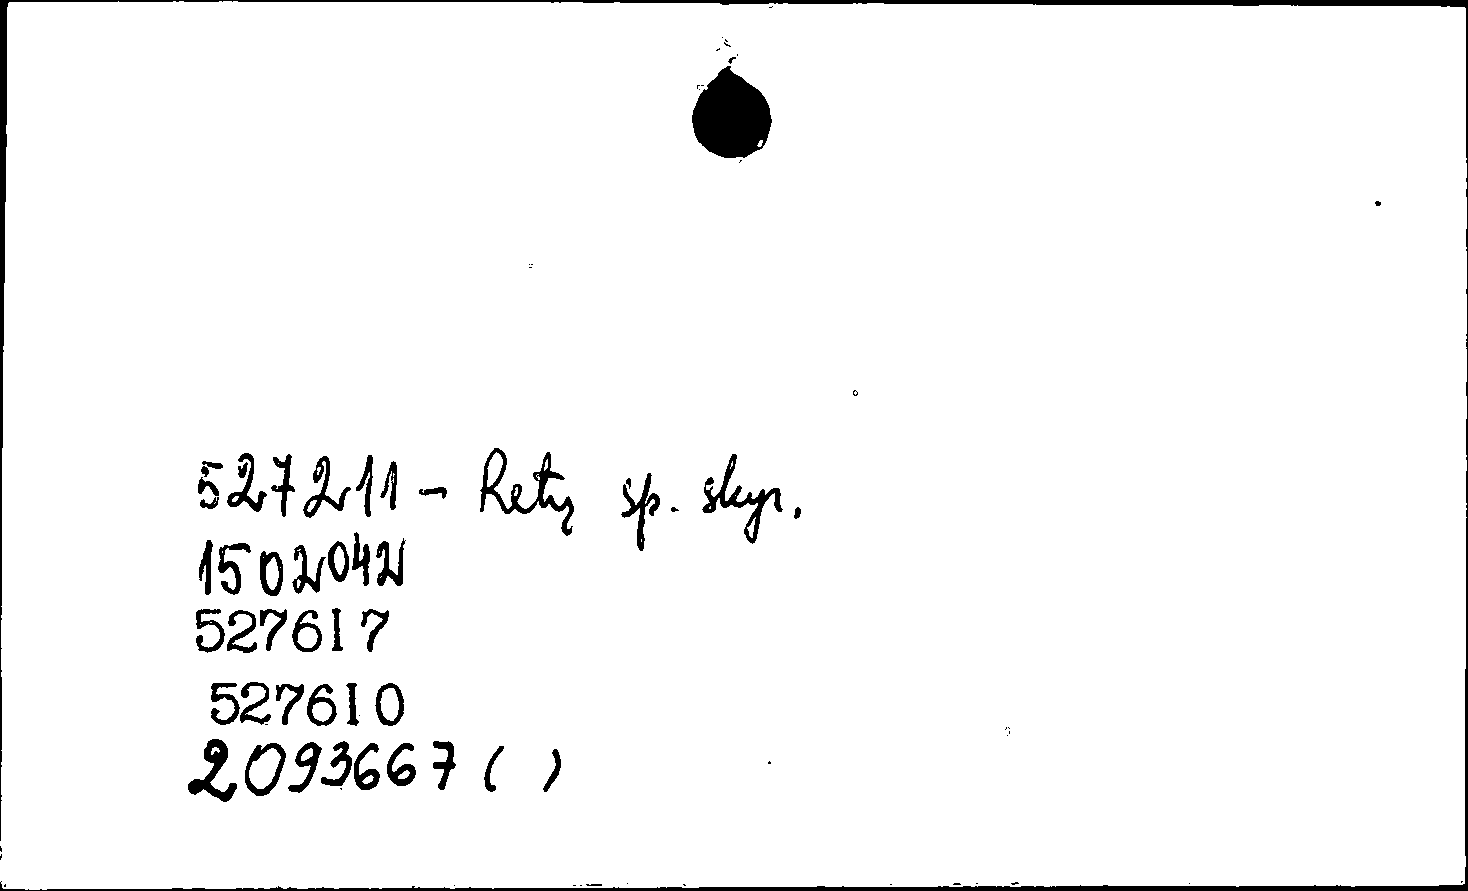 527211 – Retų sp. skyr.
1502042
527617
527610
2093667 ( )